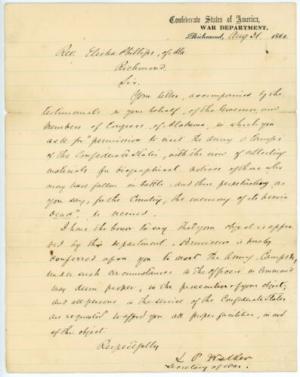 Confederate States of America,
WAR DEPARTMENT,
Richmond, Aug 21. 1861
Rev. Elisha Phillips, of Ala
Richmond
Sir.
Your letter, accompanied by the
testimonials in your behalf, of the Governor, and
members of Congress, of Alabama, in which you
ask for permission to visit the Army & Camps
of the Confederate States, with the view of collecting
materials for biographical notices of those who
may have fallen in battle, and thus perpetuating, as
you say, for the Country, the memory of its heroic
dead", is received.
I have the honor to say that your object is approv-
ed by this department, & permission is hereby
conferred upon you to visit the Army, Camps &c,
under such circumstances as the officers in Command
may deem proper, in the prosecution of your object;
and all persons in the service of the Confederate States
are requested to afford you all proper facilities, in aid
of the object
Respectfully
L. P. Walker
Secretary of War.